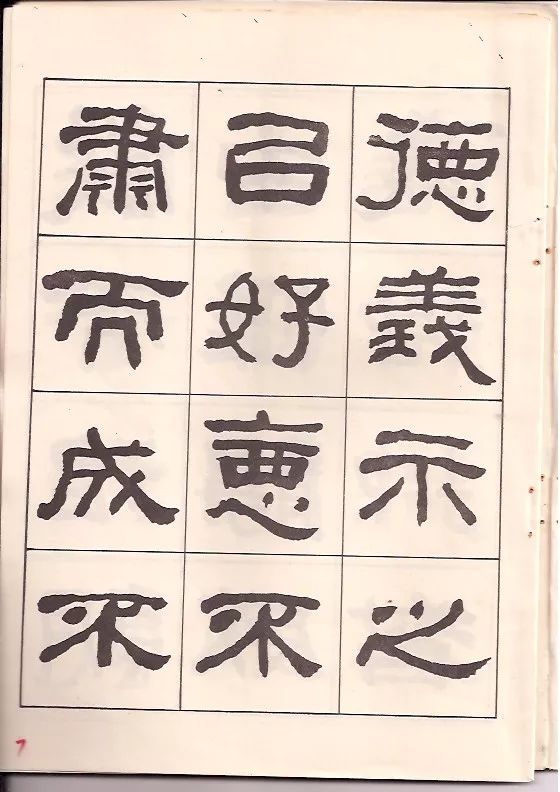 德義示之
㠯好惡不
肅而成不
7